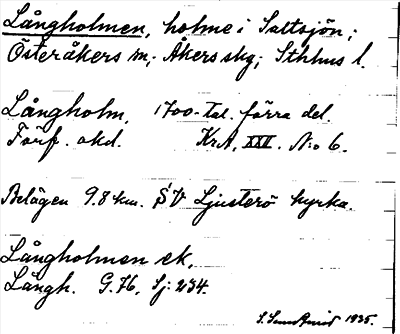 Långholmen, holme i Saltsjön;
Österåkers sn; Åkers skg; Sthlms l.
Långholm, 1700-tal. förra del.
Förf. okd. KrA, XXII. N:o 6.
Belägen 9.8 km. SV Ljusterö kyrka.
Långholmen ek,
Långh. G.76, Sj: 234.
1935.